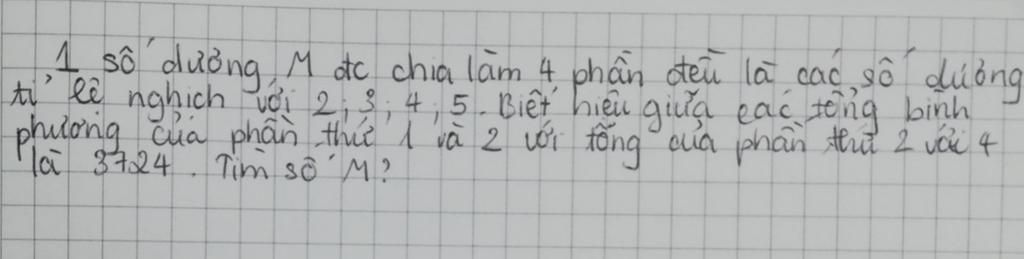 1 số dương M đc chia làm 4 phần đều là các số dương
tỉ lệ nghịch với 2; 3; 4; 5. Biết hiệu giữa các tổng bình
phương của phần thứ 1 và 2 với tổng của phần thứ 2 với 4
là 3724. Tìm số M?